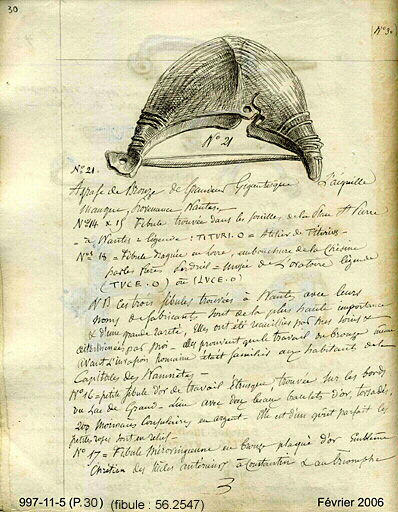 30
N° 30
N° 21
N° 21.
Agrafe de Bronze de Grandeur Gigantesque L'aiguille
manque, provenance Nantes.
N° 14 & 15 Fibule trouvée dans les fouilles, de la Place St Pierre
à Nantes = légende: TITURI.O = Atelier de Titurius.
N° 18 = Fibule Draguée en Loire, embouchure de la Chésine
par les frères = Musée de L'oratoire légende
(TVCE.O) ou (LVCE.O)
NB Ces trois fibules trouvées à Nantes, avec leurs
noms de fabricants sont de la plus haute importance
& d'une grande rareté, Elles ont été recueillies par mes soins &
déterminées par moi. Elles prouvent que le travail du bronze
avant l'invasion Romaine était familier aux habitants de la
Capitale des Namnètes =
N° 16 = petite fibule d'or de travail Etrusque trouvée sur les bords
du Lac de Grand-Lieu avec deux beaux bracelets d'or torsadés,
200 monnaies Consulaires en argent. Elle est d'un goût parfait les
petites roses sont en relief =
N° 17 = Fibule Mérovingienne en bronze plaqué d'or Emblème
Chrétien des siècles antérieurs à Constantin & au triomphe
3
997-11-5 (P.30) (fibule : 56.2547) Février 2006